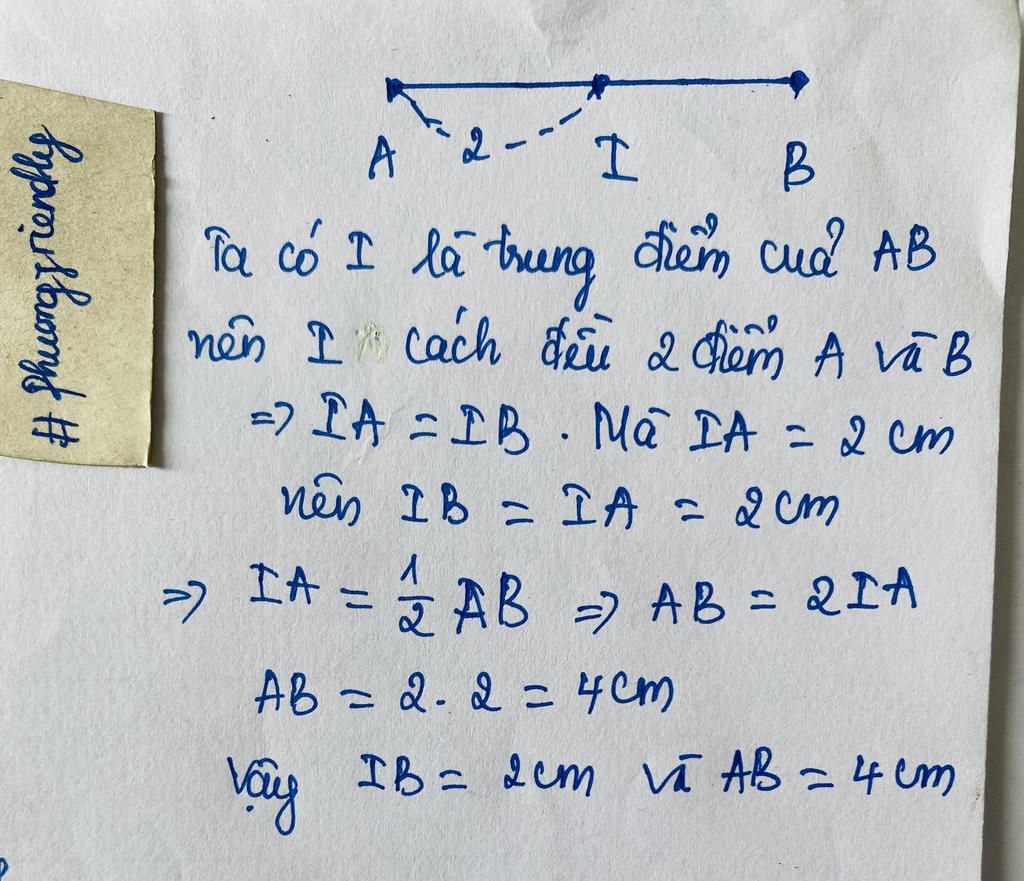 #phuongfriendly
A 2 I B
Ta có I là trung điểm của AB
nên I cách đều 2 điểm A và B
=> IA = IB. Mà IA = 2 cm
nên IB = IA = 2cm
=> IA = 1/2 AB => AB = 2IA
AB = 2. 2 = 4cm
Vậy IB = 2cm và AB = 4cm